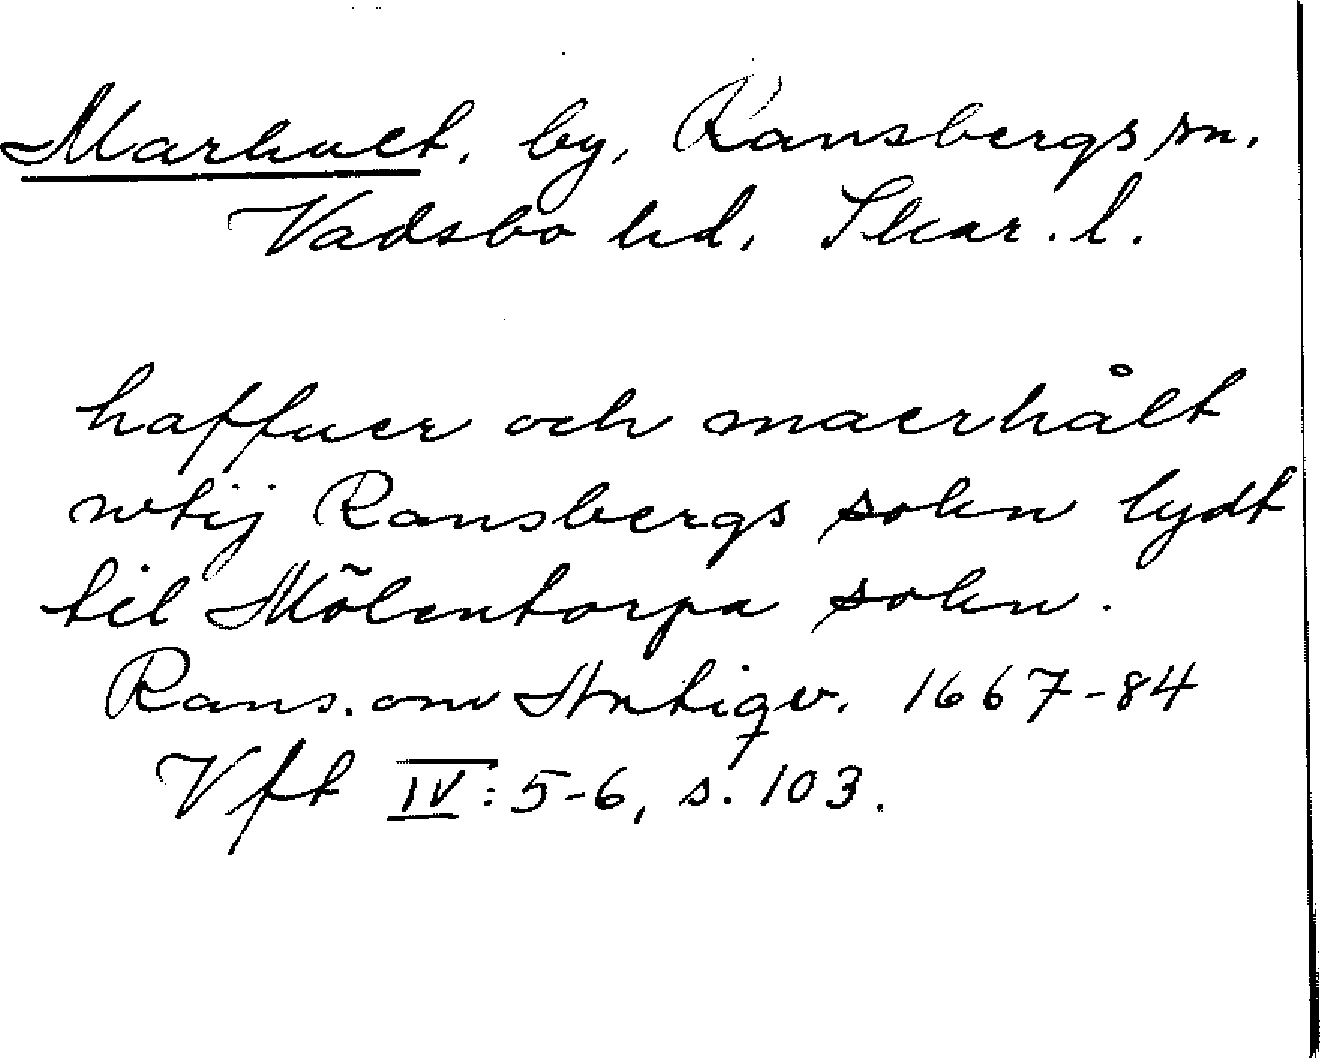 Marhult, by, Ransbergs sn.
Vadsbo hd, Skar. l.
haffuer och maerhålt
wtij Ransbergs sokn lydt
til Mölentorpa sokn.
Rans. om Antiqv. 1667-84
Vft IV: 5-6, s. 103.